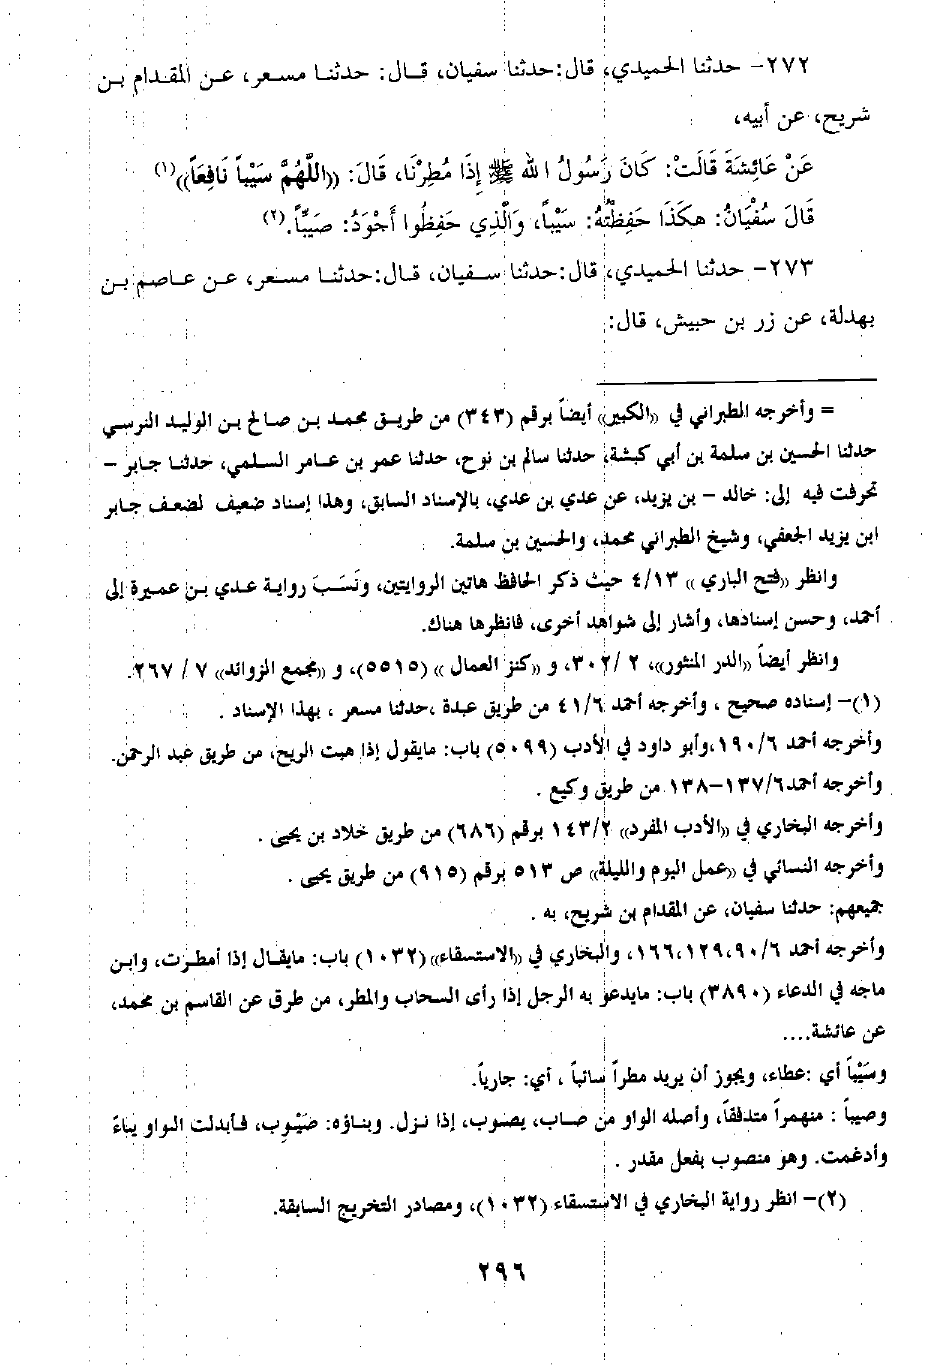 ٢٧٢- حدثنا الحميدي، قال: حدثنا سفيان، قال: حدثنا مسعر، عن المقدام بن
شريح، عن أبيه،
عَنْ عَائِشَةَ قَالَتْ: كَانَ رَسُولُ الله ﷺ إِذَا مُطِرْنَا، قَالَ: ((اللَّهُمَّ سَيْباً نَافِعَاً))(١)
قَالَ سُفْيَانُ: هكَذَا حَفِظْتُهُ: سَيْباً، وَالَّذِي حَفِظُوا أَجْوَدُ: صَيِّباً.(٢)
٢٧٣- حدثنا الحميدي، قال: حدثنا سفيان، قال: حدثنا مسعر، عن عاصم بن
بهدلة، عن زر بن حبيش، قال:
= وأخرجه الطبراني في ((الكبير)) أيضاً برقم (٣٤٣) من طريق محمد بن صالح بن الوليد النرسي
حدثنا الحسين بن سلمة بن أبي كبشة، حدثنا سالم بن نوح، حدثنا عمر بن عامر السلمي، حدثنا جابر –
تحرفت فيه إلى: خالد – بن يزيد، عن عدي بن عدي، بالإسناد السابق، وهذا إسناد ضعيف لضعف جابر
ابن يزيد الجعفي، وشيخ الطبراني محمد، والحسين بن سلمة.
وانظر ((فتح الباري)) ٤/١٣ حيث ذكر الحافظ هاتين الروايتين، ونَسَبَ رواية عدي بن عميرة إلى
أحمد، وحسن إسنادها، وأشار إلى شواهد أخرى، فانظرها هناك.
وانظر أيضاً ((الدر المنثور))، ٢ /٣٠٢، و ((كنز العمال)) (٥٥١٥)، و ((مجمع الزوائد)) ٧ / ٢٦٧.
(١)- إسناده صحيح ، وأخرجه أحمد ٤١/٦ من طريق عبدة ،حدثنا مسعر ، بهذا الإسناد .
وأخرجه أحمد ١٩٠/٦،وأبو داود في الأدب (٥٠٩٩) باب: مايقول إذا هبت الريح، من طريق عبد الرحمن.
وأخرجه أحمد١٣٧/٦-١٣٨ من طريق وكيع .
وأخرجه البخاري في ((الأدب المفرد)) ١٤٣/٢ برقم (٦٨٦) من طريق خلاد بن يحيى .
وأخرجه النسائي في ((عمل اليوم والليلة)) ص ٥١٣ برقم (٩١٥) من طريق يحيى .
جميعهم: حدثنا سفيان، عن المقدام بن شريح، به .
وأخرجه أحمد ٩٠/٦، ١٢٩، ١٦٦، والبخاري في ((الاستسقاء)) (١٠٣٢) باب: مايقال إذا أمطرت، وابن
ماجه في الدعاء (٣٨٩٠) باب: مايدعو به الرجل إذا رأى السحاب والمطر، من طرق عن القاسم بن محمد،
عن عائشة....
وسَيْباً أي :عطاء، ويجوز أن يريد مطراً سائباً ، أي: جارياً.
وصيباً : منهمراً متدفقاً، وأصله الواو من صاب، يصوب، إذا نزل. وبناؤه: صَيْوِب، فأبدلت الواو ياءً
وأدغمت. وهو منصوب بفعل مقدر .
(٢)- انظر رواية البخاري في الاستسقاء (١٠٣٢)، ومصادر التخريج السابقة.
٢٩٦